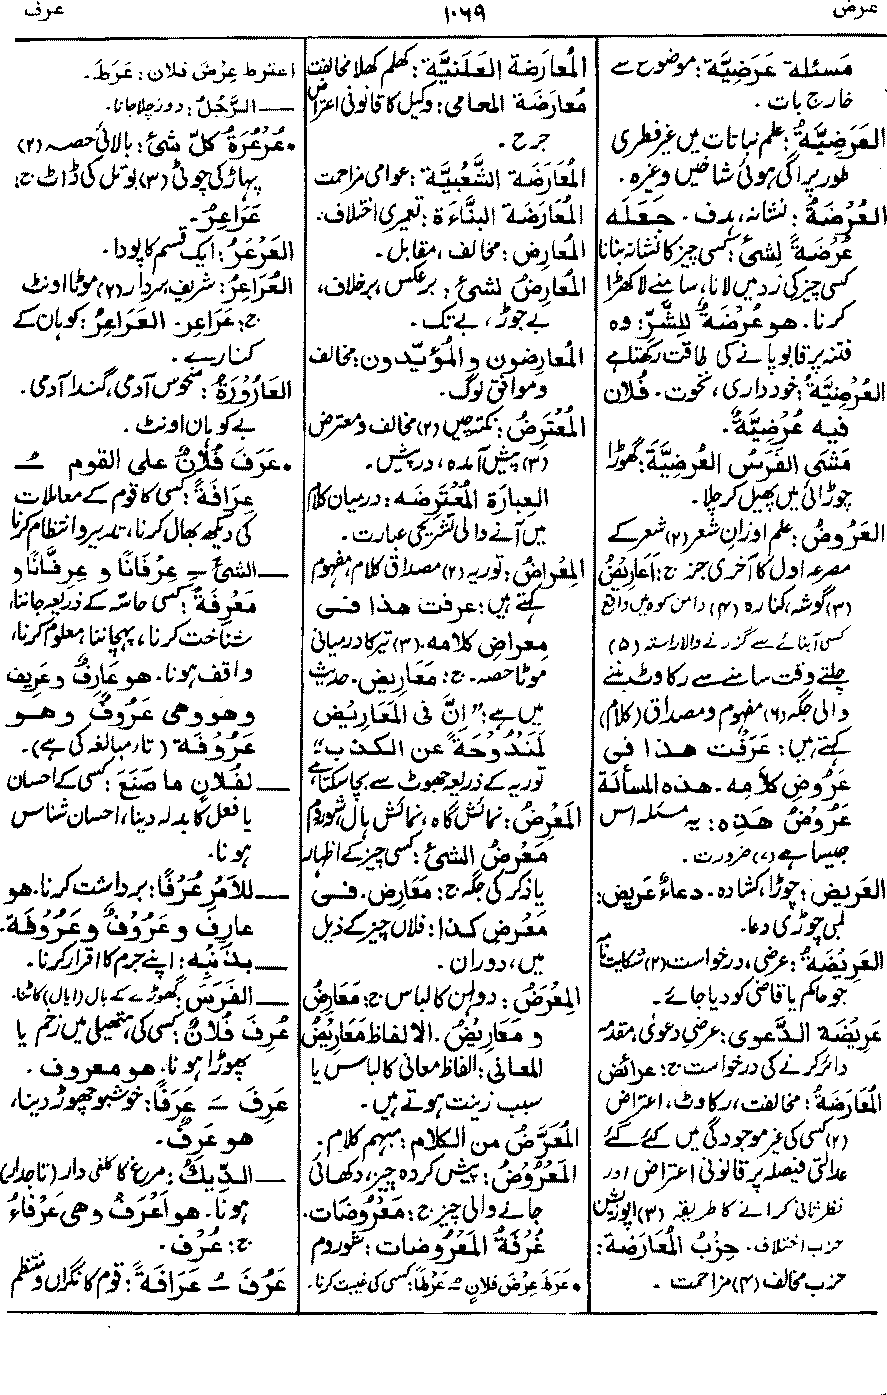 عرض
۱۰۶۹
عرف
مَسئلة عَرَضِيَّة: موضوع سے
خارج بات۔
العَرَضِيَّةُ: علم نباتات میں غیر فطری
طور پر اگی ہوئی شاخیں وغیرہ۔
العُرْضَةُ: نشانہ، ہدف۔ جَعَلَه
عُرْضَةً لِشئ: کسی چیز کا نشانہ بنانا
کسی چیز کی زد میں لانا، سامنے لا کھڑا
کرنا۔ هو عُرْضَةٌ لِلشَّرِّ: وہ
فتنہ پر قابو پانے کی طاقت رکھتا ہے
العُرْضِيَّةُ: خود داری، نخوت۔ فُلان
فیه عُرْضِيَّةٌ۔
مَشَى الفَرَسُ العُرْضِيَّةَ: گھوڑا
چوڑائی میں پھیل کر چلا۔
العَرُوضُ: علم اوزانِ شعر (۲) شعر کے
مصرعہ اول کا آخری جز ج: أعَارِيضُ
(۳) گوشہ، کنارہ (۴) دامن کوہ میں واقع
کسی آبنائے سے گزرنے والا راستہ (۵)
چلتے وقت سامنے سے رکاوٹ بننے
والی جگہ (۶) مفہوم و مصداق (کلام)
کہتے ہیں: عَرَفْت هذا فی
عَرُوضِ كلاَمِه۔ هذه المسألة
عَرُوضُ هَذِه: یہ مسئلہ اس
جیسا ہے (۷) ضرورت۔
العَرِيض: چوڑا، کشادہ۔ دعاءٌ عَرِيض:
لمبی چوڑی دعا۔
العَرِيضَةُ: عرضی، درخواست (۲) شکایت نامہ
جو حاکم یا قاضی کو دیا جائے۔
عَرِيضَة الدَّعوى: عرضی دعویٰ، مقدمہ
دائر کرنے کی درخواست ج: عرائض
المُعَارَضَةُ: مخالفت، رکاوٹ، اعتراض
(۲) کسی کی غیر موجودگی میں کئے گئے
عدالتی فیصلہ پر قانونی اعتراض اور
نظر ثانی کرانے کا طریقہ (۳) اپوزیشن
حزب اختلاف۔ حِزْبُ المُعارَضَة:
حزب مخالف (۴) مزاحمت۔
المُعارَضَة العَلَنيَّة: کھلم کھلا مخالفت
مُعارَضَة المحامی: وکیل کا قانونی اعتراض
جرح۔
المُعَارَضَة الشَّعْبِيَّة: عوامی مزاحمت
المُعَارَضَة البنَّاءَة: تعمیری اختلاف۔
المُعَارِض: مخالف، مقابل۔
المُعَارِضُ لشئ: برعکس، برخلاف،
بے جوڑ، بے تک۔
المُعَارِضون والمُؤيِّدون: مخالف
و موافق لوگ۔
المُعْتَرِضُ: نکتہ چیں (۲) مخالف و معترض
(۳) پیش آمدہ، درپیش۔
العِبارَة المُعْتَرِضَه: درمیان کلام
میں آنے والی تشریحی عبارت۔
المِعْراضُ: توریہ (۲) مصداق کلام، مفہوم
کہتے ہیں: عرفت هذا فی
مِعراضِ كلامه۔ (۳) تیر کا درمیانی
موٹا حصہ۔ ج: مَعَارِيض۔ حدیث
میں ہے: "إنَّ فی المَعَارِيْضِ
لَمَنْدُوْحَةً عن الكذب"
توریہ کے ذریعہ جھوٹ سے بچا سکتا ہے
المَعْرِضُ: نمائش گاہ، نمائش ہال، شوروم
مَعْرِضُ الشئ: کسی چیز کے اظہار
یا ذکر کی جگہ ج: مَعَارِض۔ فی
مَعْرِضِ كذا: فلاں چیز کے ذیل
میں، دوران۔
المِعْرَضُ: دولہن کا لباس ج: مَعَارِضُ
و مَعَارِيضُ۔ الالفاظ مَعَارِيْضُ
المعانی: الفاظ معانی کا لباس یا
سبب زینت ہوتے ہیں۔
المُعَرَّضُ من الكلام: مبہم کلام۔
المَعْرُوْضُ: پیش کردہ چیز، دکھائی
جانے والی چیز ج: مَعْرُوضَات۔
غُرْفَةُ المَعْرُوضات: شوروم
• عَرَطَ عِرْضَ فلانٍ ـُ عَرْطًا: کسی کی غیبت کرنا۔
اعترط عِرْضَ فلان: عَرَطَ۔
— الرَّجُلُ: دور چلا جانا۔
• عُرْعُرَةُ كلّ شئ: بالائی حصہ (۲)
پہاڑ کی چوٹی (۳) بوتل کی ڈاٹ ج:
عَرَاعِرُ۔
العَرْعَرُ: ایک قسم کا پودا۔
العُرَاعِرُ: شریف، سردار (۲) موٹا اونٹ
ج: عَرَاعِر۔ العَرَاعِرُ: کوہان کے
کنارے۔
العَارُوْرَةُ: منحوس آدمی، گندا آدمی۔
بے کوہان اونٹ۔
• عَرَفَ فُلَانٌ على القوم ـُ
عِرَافَةً: کسی کا قوم کے معاملات
کی دیکھ بھال کرنا، تدبیر و انتظام کرنا
— الشئ ـِ عِرْفَانًا و عِرِفَّانًا و
مَعْرِفَةً: کسی حاسّہ کے ذریعہ جاننا،
شناخت کرنا، پہچاننا، معلوم کرنا،
واقف ہونا۔ هو عَارِفٌ و عَرِيف
وهو وهی عَرُوْفٌ وهو
عَرُوْفَة (تار مبالغہ کی ہے)۔
— لفُلانٍ ما صَنَعَ: کسی کے احسان
یا فعل کا بدلہ دینا، احسان شناس
ہونا۔
— للأمْرِ عُرْفًا: برداشت کرنا۔ هو
عارِفٌ و عَرُوْفٌ و عَرُوْفَة۔
— بِذَنْبِه: اپنے جرم کا اقرار کرنا۔
— الفَرَسَ: گھوڑے کے بال (ایال) کاٹنا۔
عُرِفَ فُلانٌ: کسی کی ہتھیلی میں زخم یا
پھوڑا ہونا۔ هو معروف۔
عَرِفَ ـَ عَرَفًا: خوشبو چھوڑ دینا،
هو عَرِفٌ۔
— الدِّيكُ: مرغ کا کلغی دار (تاجدار)
ہونا۔ هو أعْرَفُ وهی عَرْفَاءُ
ج: عُرْف۔
عَرُفَ ـُ عَرَافَةً: قوم کا نگراں و منتظم